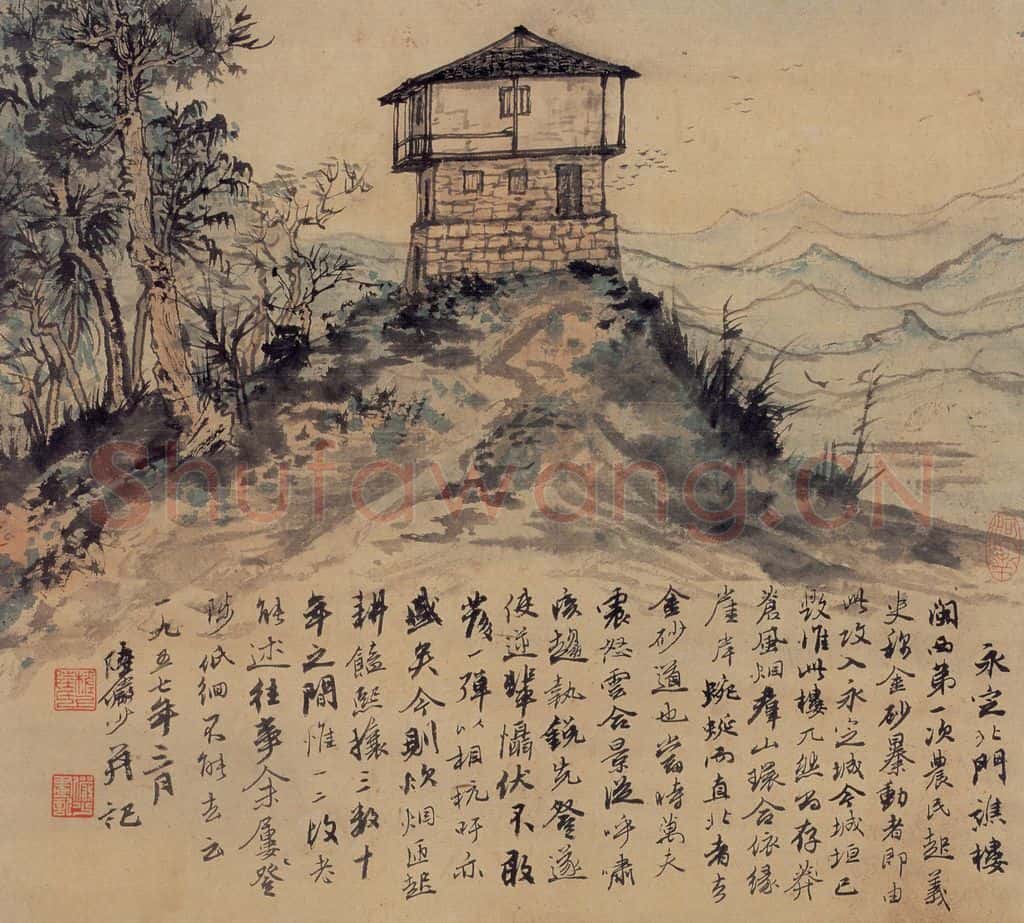 永定北門譙樓
閩西第一次農民起義
史称金砂暴動者即由
此攻入永定城今城垣已
毀惟此樓兀然尚存莽
蒼風烟群山環合依緣
崖岸蜿蜒而直北者去
金砂道也當時萬夫
震怒雲合景從呼嘯
趨執銳先登遂
使逆輩懾伏不敢
發一彈以相抗吁亦
盛矣今則炊烟起
耕饁熙攘三數十
年之間惟一二故老
能述往事余屢登
陟低徊不能去云
一九五七年三月
陸儼少并記
Shufawang.CN